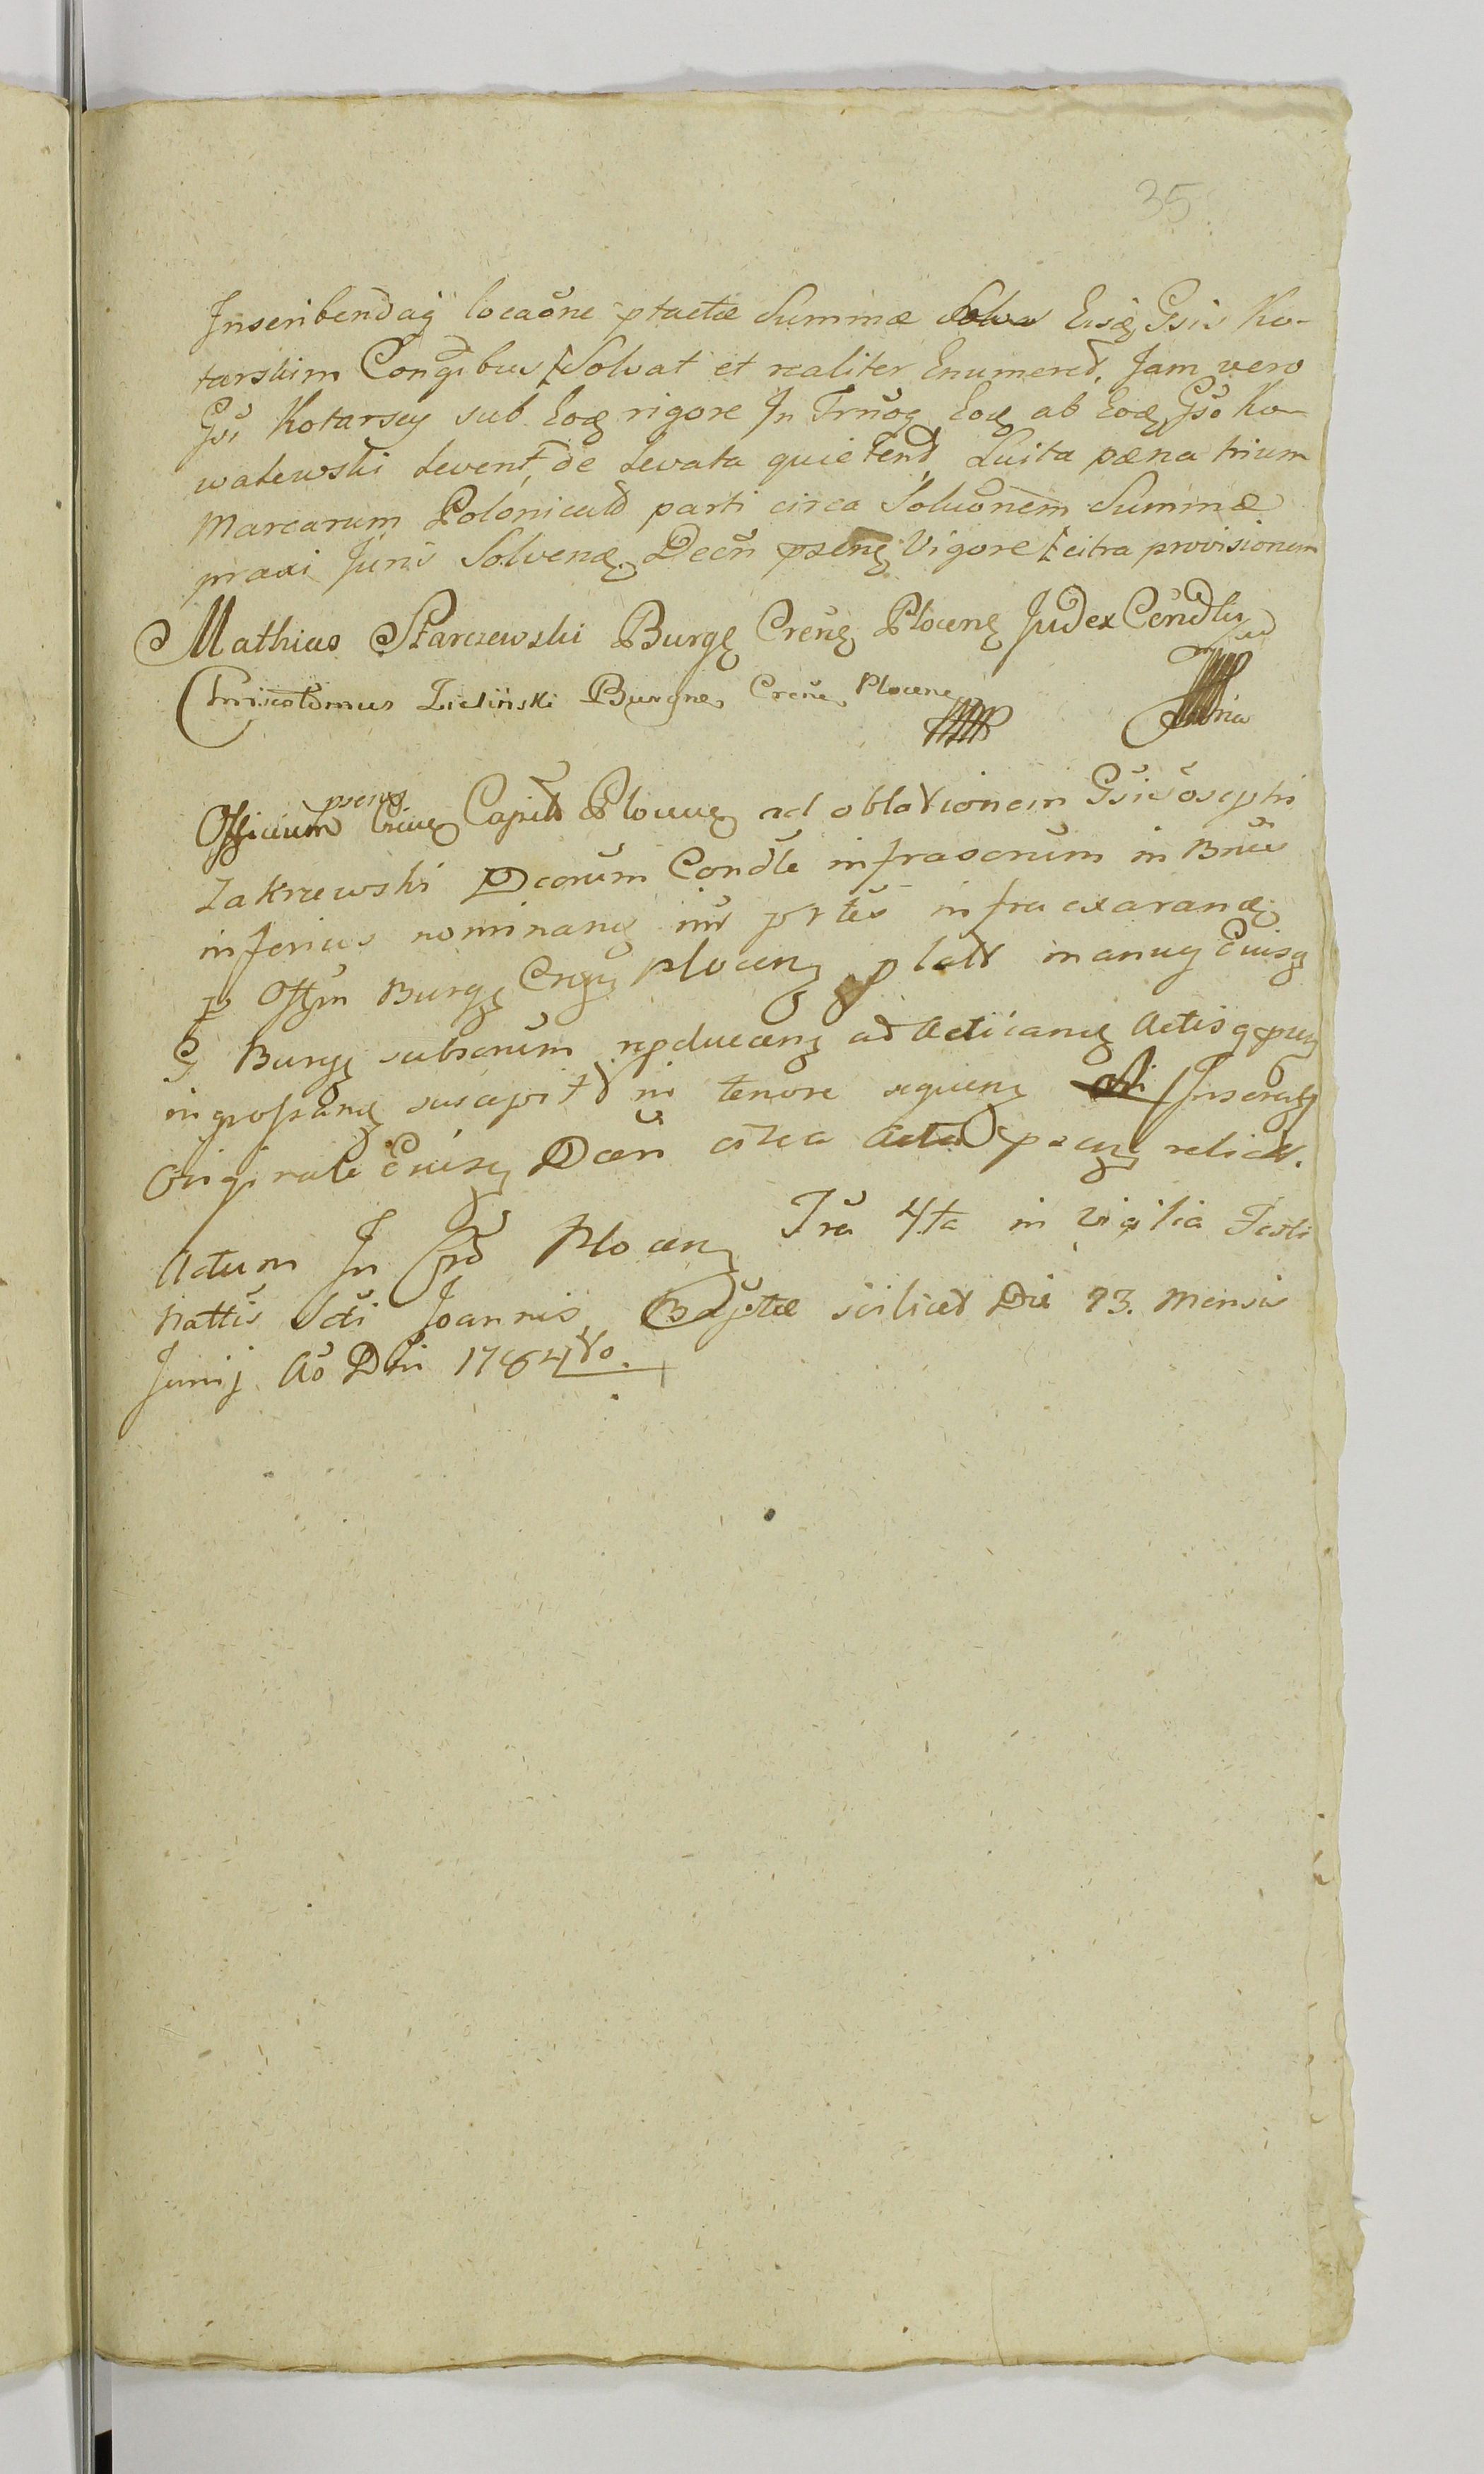 35
Inscribendaq̃ locaõne ptactæ Summæ Eisq Gsis Ko-
tarskim Conḡibus Solvat et realiter Enumered, Jam vero
Gsi Kotarscy sub Eoq rigore In Trnõq Eoq ab Eoq Gsõ Ko-
walewski Levent, de Levata quietend Luita pæna trium
Marcarum Polonicald parti circa Soluõnem Summæ
praxi Juris Solvenq Decñ psenq Vigore citra provisionem
Mathias Starczewski Burgq Crenq Plocenq Judex Cendlis
Chrisostomus Zieliński Burgne Crene Plocene
psens
Officium Crenq Capitl Plocenq ad oblationem Gsis Josephi
Zakrzewski Dcorũm Condle infrascrũm in Bnũs
inferius nominanq inr prtes infra exaranq
p Offm Burgq Crenq plocenq latt manuq Eiusq
G Burgq subscrũm rpducenq ad Acticanq Actisq psenq
ingrossanq suscepit in tenore sequenq Inscratq
Originale Eiusq Decñ circa Acta psenq relict.
Actum In Crõ Plocenq Fra 4ta in vigilia Festi
Nattis Scti Joannis Baptæ scilicet Die 23. Mensis
Junij Aõ Dni 1784to.